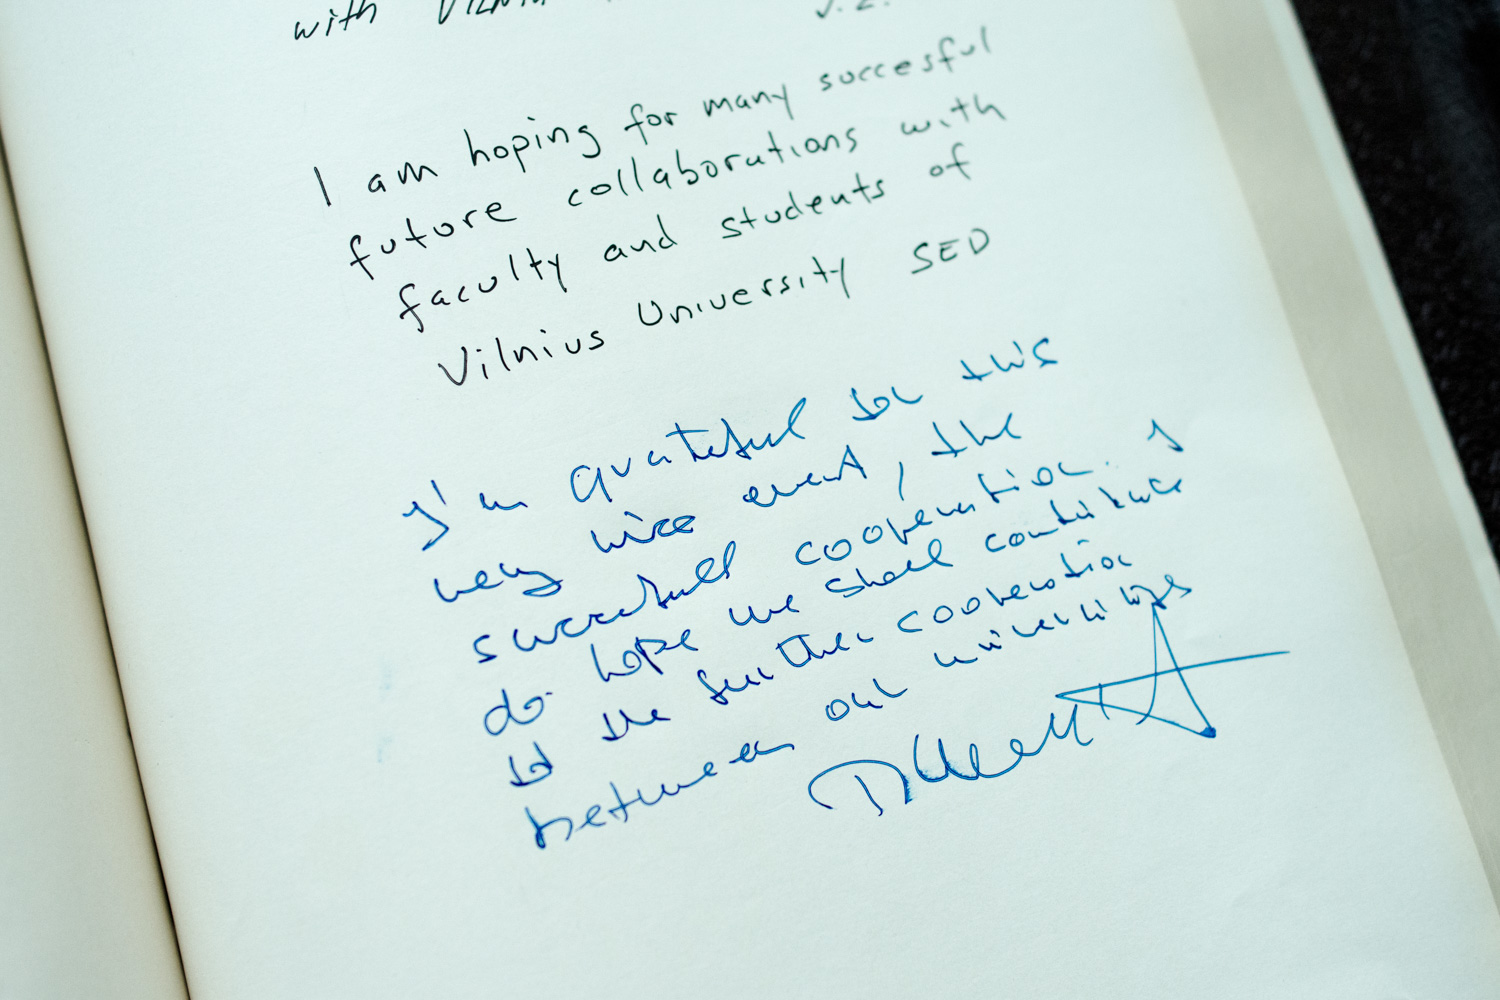 with Vilni
J. Z.
I am hoping for many succesful
future collaborations with
faculty and students of
Vilnius University SED
I'm grateful for this
very nice event, the
successfull cooperation. I
do hope we shall contribute
to the further cooperation
between our universities